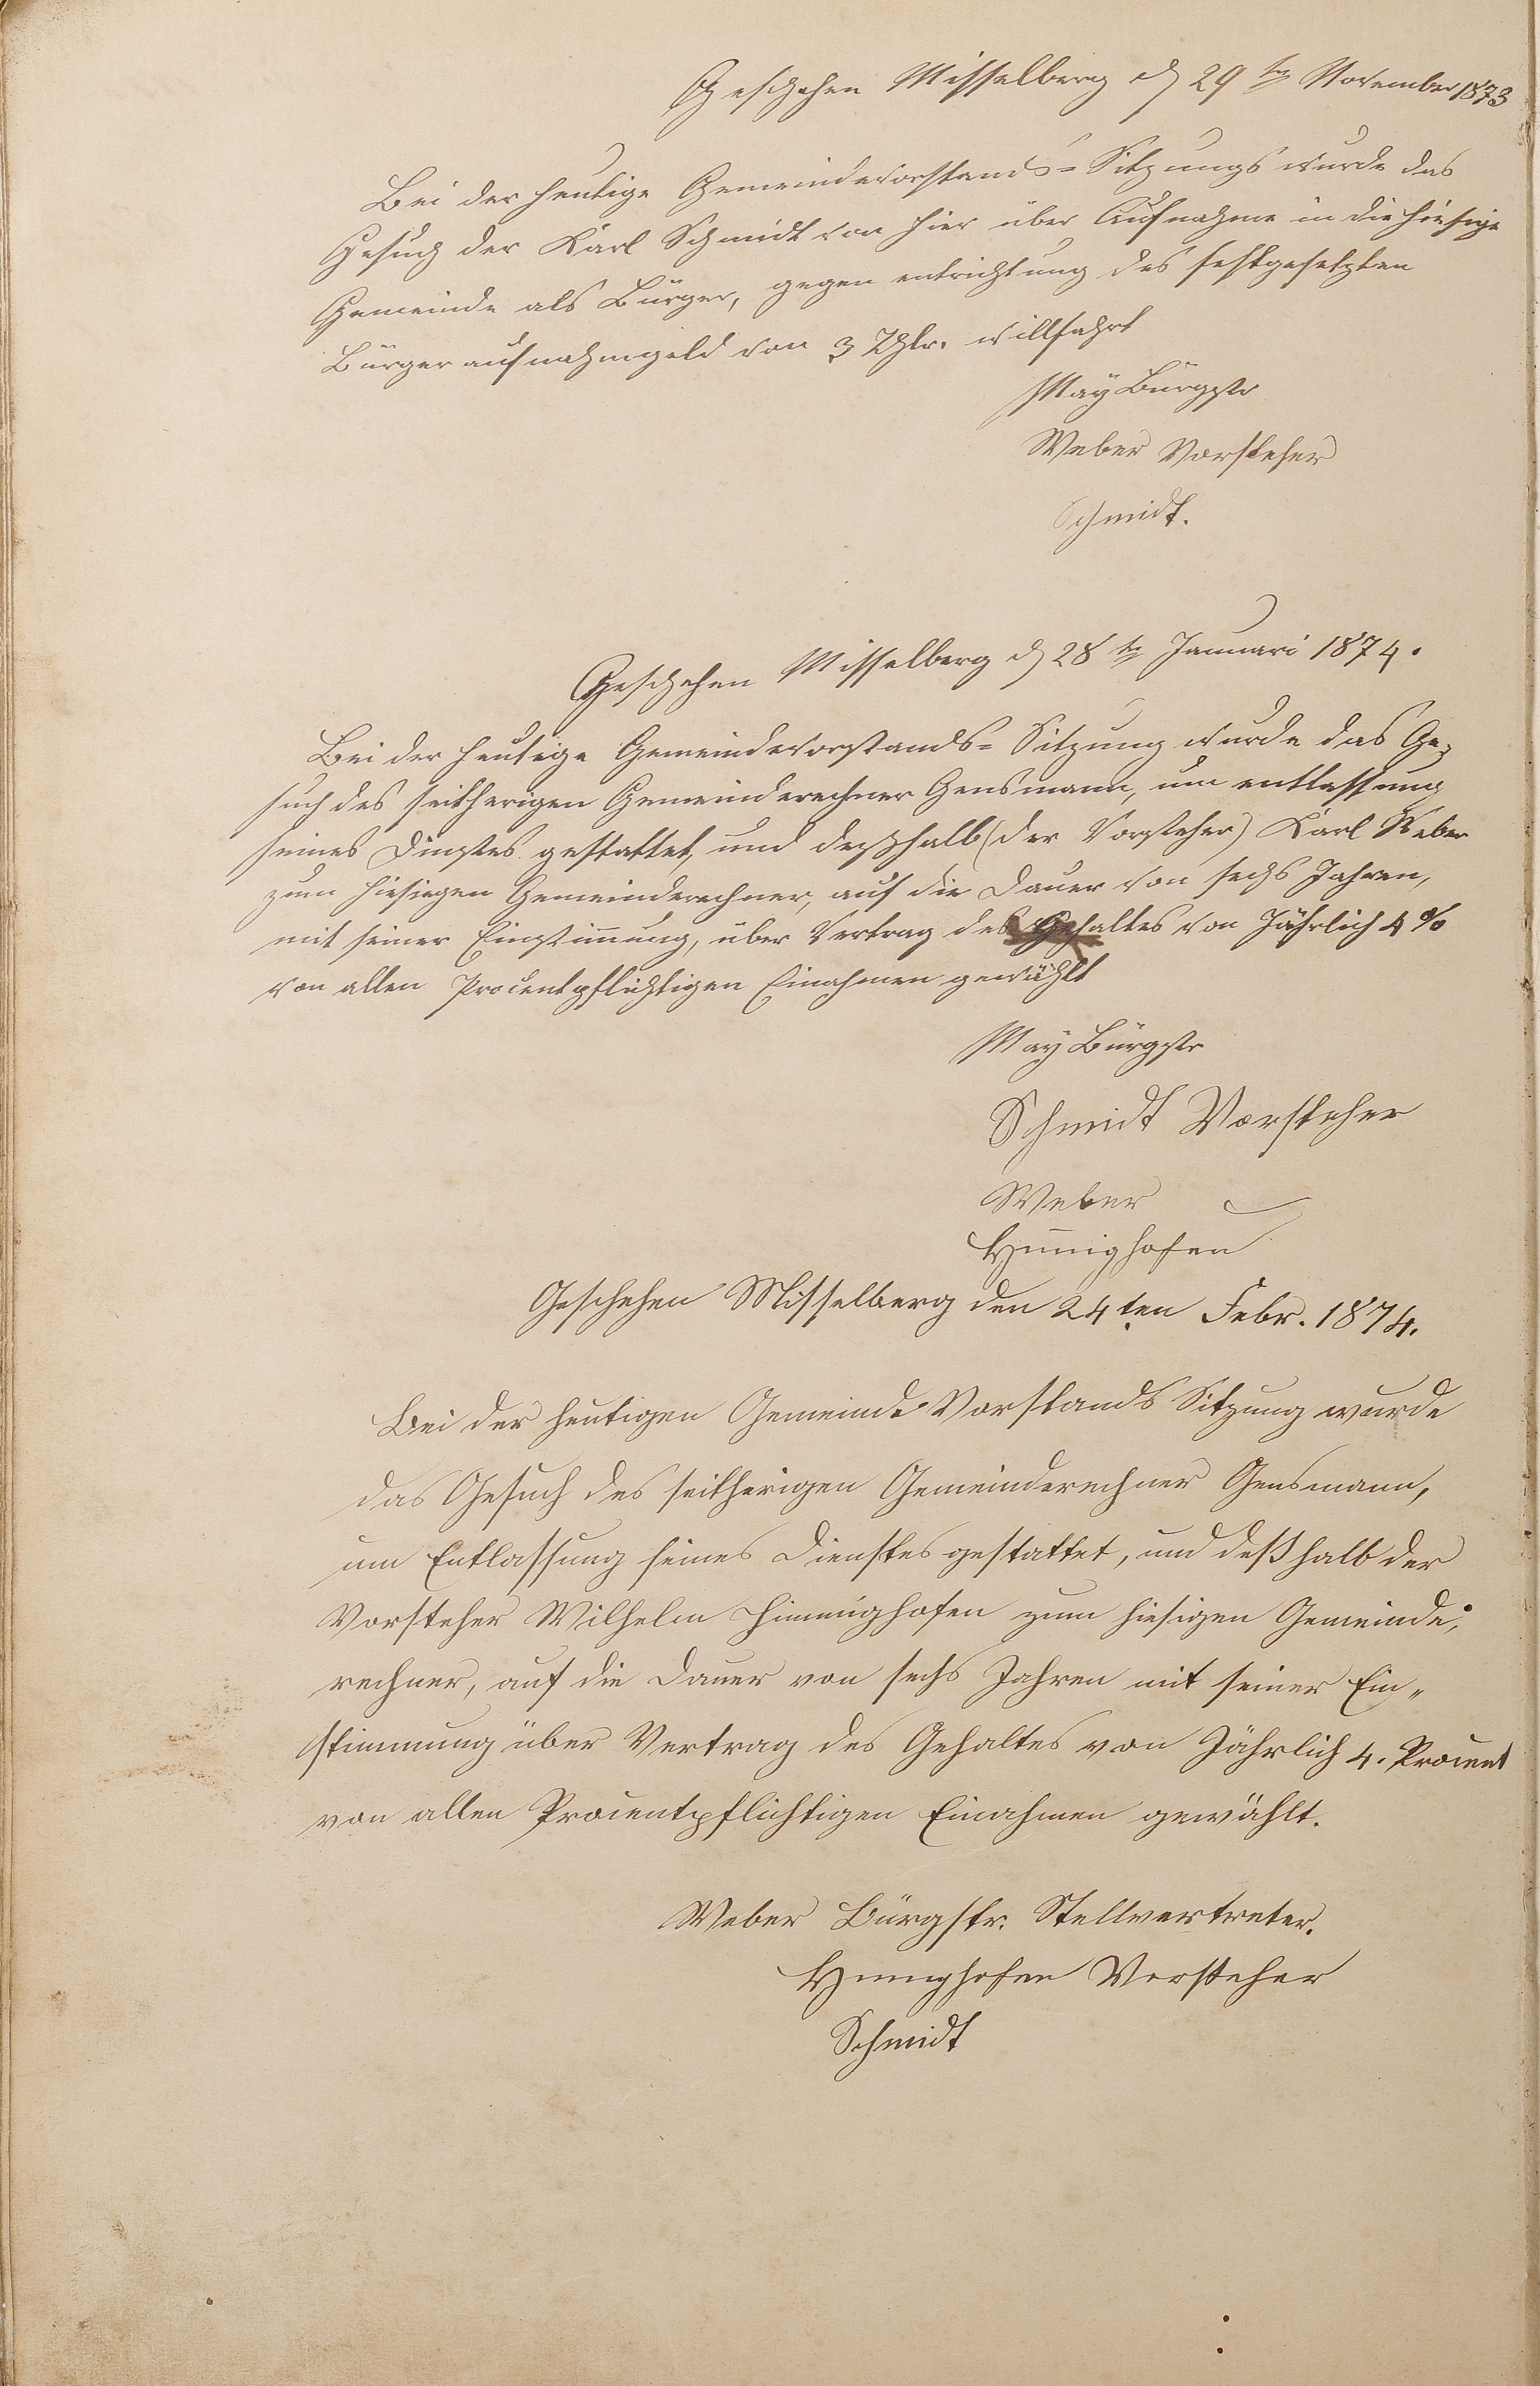 Geschehen Misselberg d 29ten November 1873
Bei der heutige Gemeindevorstands=Sitzungs wurde das
Gesuch der Karl Schmidt von hier über Aufnahme in die hiesige
Gemeinde als Bürger, gegen entrichtung des festgesetzten
Bürgeraufnahmgeld von 3 Thlr. willfahrt
May Bürgstr
Weber Vorsteher
Schmidt.
Geschehen Misselberg d 28ten Januari 1874.
Bei der heutige Gemeindevorstands= Sitzung wurde das Ge=
such des seitherigen Gemeinderechner Gensmann, um entlassung
seines Dinstes gestattet, und deßhalb (der Vorsteher) Karl Weber
zum hiesiegen Gemeinderechner, auf die Dauer von sechs Jahren,
mit seiner Einstim̅ung, über Vertrag des Gehaltes von Jährlich 4 %
von allen Procentpflichtigen Einahmen gewählt
May Bürgstr
Schmidt Vorsteher
Weber
Hin̅ighofen
Geschehen Misselberg den 24ten Febr. 1874.
Bei der heutigen Gemeinde Vorstands Sitzung wurde
das Gesuch des seitherigen Gemeinderechner Gensmann,
um Entlassung seines Dienstes gestattet, und deßhalb der
Vorsteher Wilhelm Hinnighofen zum hiesigen Gemeinde,
rechner, auf die Dauer von sechs Jahren mit seiner Ein„
stimmung über Vertrag des Gehaltes von Jährlich 4. Procent
von allen Procentpflichtigen Einahmen gewählt.
Weber Bürgstr. Stellvertreter.
Hinnighofen Vorsteher
Schmidt